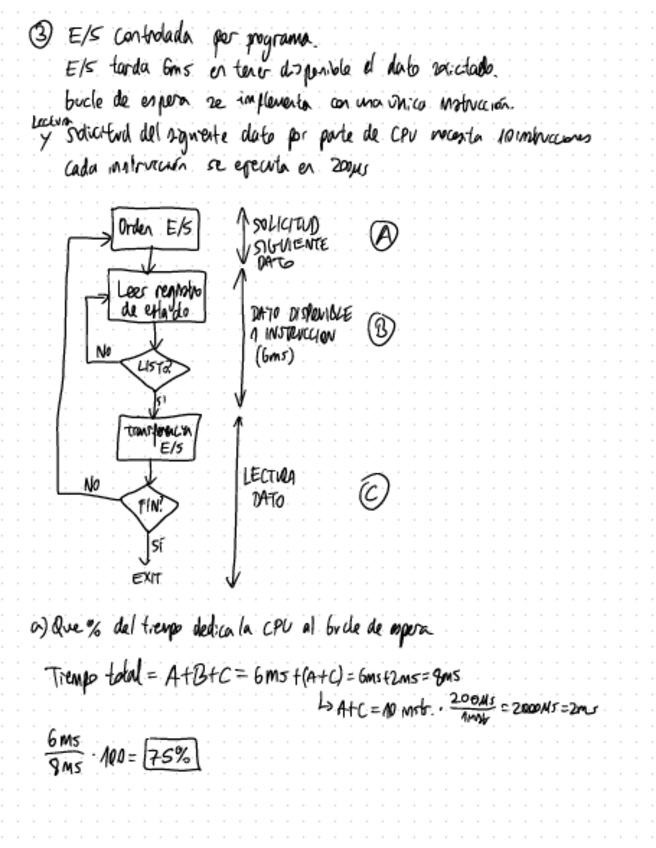 ③ E/S controlada por programa.
E/S tarda 6ms en tener disponible el dato solicitado.
bucle de espera se implementa con una única instrucción.
Lectura
y solicitud del siguiente dato por parte de CPU necesita 10 instrucciones
cada instrucción se ejecuta en 200µs
Orden E/S
SOLICITUD
SIGUIENTE
DATO
A
Leer registro
de estado
DATO DISPONIBLE
1 INSTRUCCION
(6ms)
B
No
LISTO?
SI
Transferencia
E/S
LECTURA
DATO
C
No
FIN?
SÍ
EXIT
a) Que % del tiempo dedica la CPU al bucle de espera
Tiempo total = A+B+C = 6ms+(A+C) = 6ms+2ms = 8ms
↳ A+C = 10 instr. · 200µs / 1instr = 2000µs = 2ms
6ms / 8ms · 100 = 75%